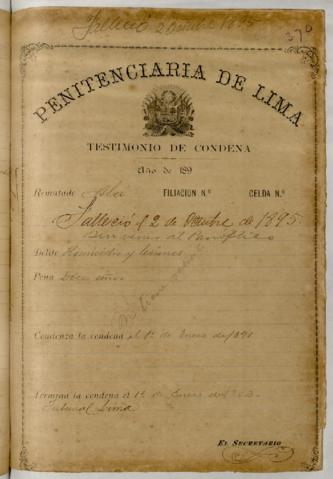 Falleció 2 Octubre 1895
370
PENITENCIARIA DE LIMA
TESTIMONIO DE CONDENA
Año de 189
Rematado Asla FILIACION N.º CELDA N.º
Falleció el 2 de Octubre de 1895
al
Delito Homicidio y lesiones
Pena Doce años
Comienza la condena el 1º de Enero de 1891
Termina la condena el 1º de Enero de 1903
Tribunal Lima
EL SECRETARIO